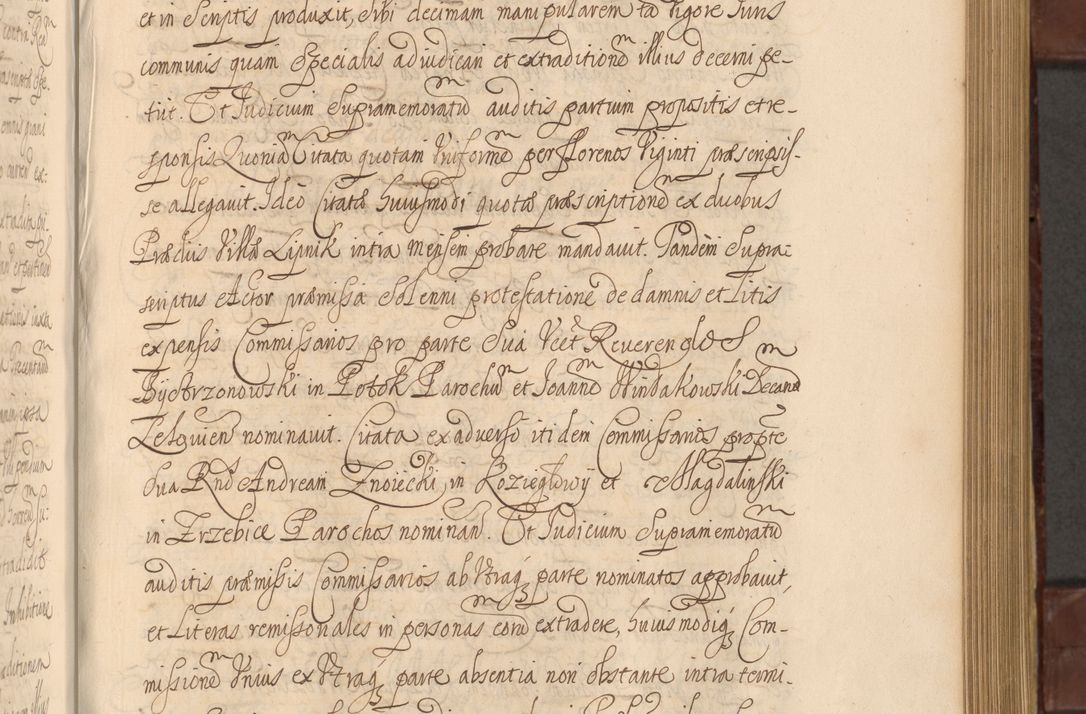 et in Scriptis produxit, Sibi decimam manipularem ta Vigore Iuris
communis quam Specialis adiudicari et extraditione illius decerni pe-
tiit. Et Iudicium Supramemoratu auditis partium propositis et re-
sponsis Quonia Citata quotam Uniforme per fflorenos Viginti præscripsis-
se allegavit. Ideo Citatæ huiusmodi quotæ præscriptione ex duobus
Præcivis Villæ Lipnik intra mensem probare mandavit. Tandem Supra-
scriptus Actor præmissa Solenni protestatione de damnis et Litis
expensis Commissarios pro parte Sua Vcet Reveren oldos
Bystrzonowski in Potok Parochu et Joanne Windakowski Decano
Lelovien nominavit. Citata ex adverso itidem Commissarios pro pte
Sua Rnd Andream Znoiecki, in Koziegłowy et Magdalinski
in Trzebice Parochos nominavt. Et Iudicium Supramemoratu
auditis præmissis Commissarios ab Utraq parte nominatos approbavit,
et Literas remissoriales in personas eoru extradere, huiusmodiq Com-
missione Unius ex Utraq parte absentia non obstante intra termi-